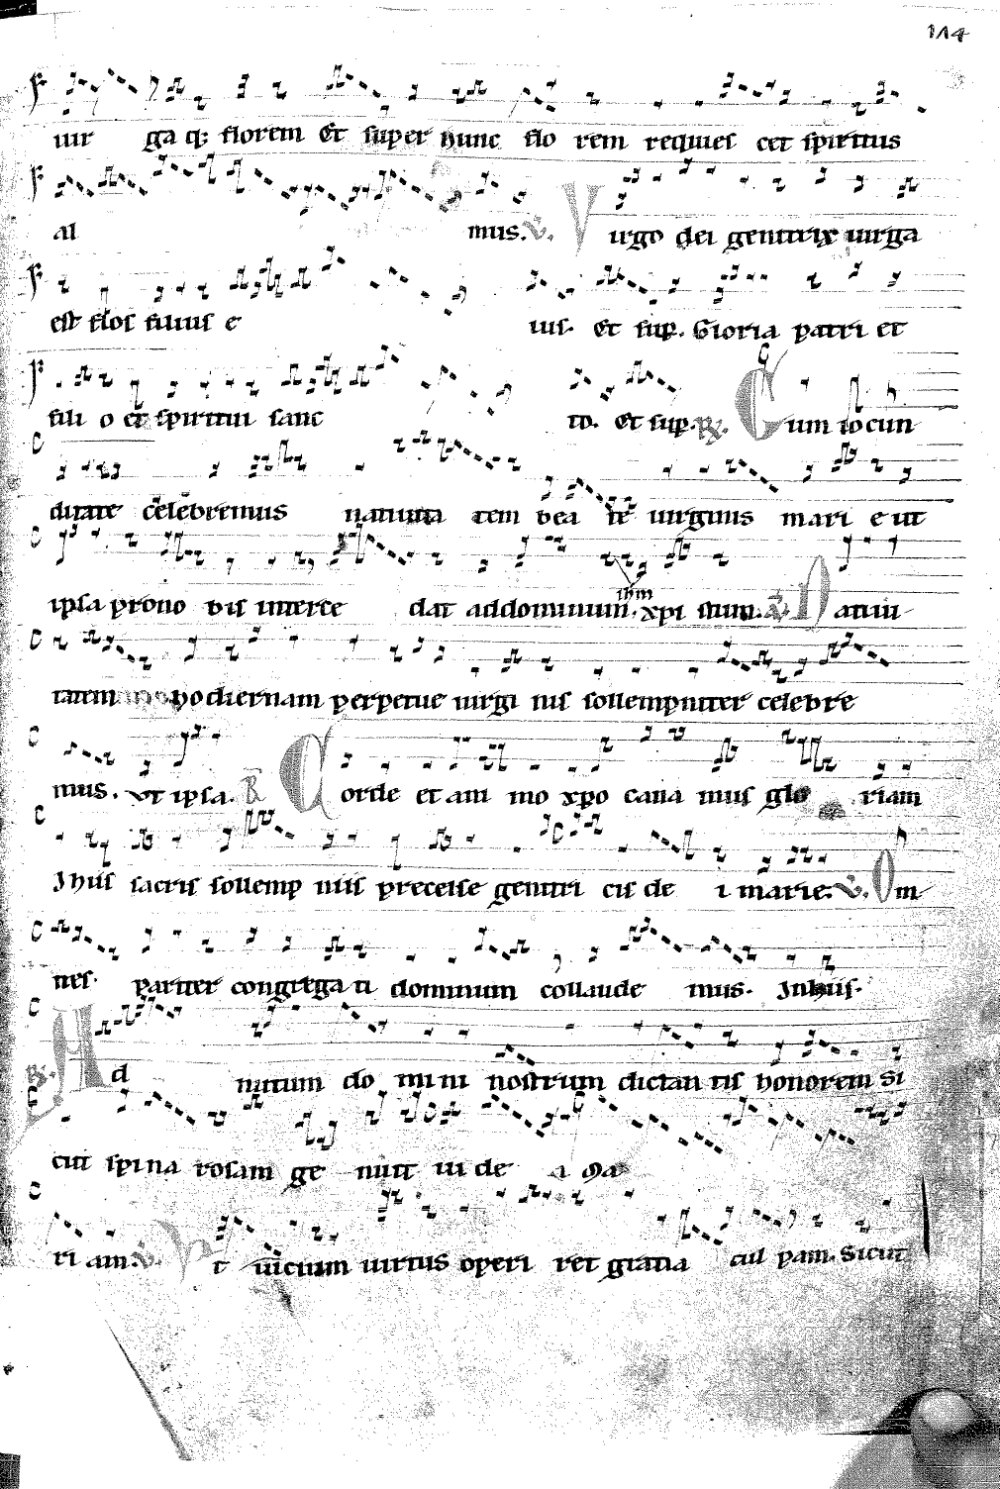 114
uir ga q; florem Et super hunc flo rem requies cet spiritus
al mus. V. Virgo dei genitrix uirga
est flos filius e ius. Et sup. Gloria patri et
fili o et spiritui sanc to. Et sup. R. Cum iocun
ditate celebremus natiuita tem bea te uirginis mari e ut
ipsa prono bis interce dat addominum ihm xpi stum. V. Natiui
tatem hodiernam perpetue uirgi nis sollempniter celebre
mus. vt ipsa. R Corde et ani mo xpo cana mus glo riam
Jhis sacris sollemp niis precelse genitri cis de i marie. V. Om
nes pariter congrega ti dominum collaude mus. Jnhiis.
R. Ad nutum do mi ni nostrum dictan tis honorem Si
cut spina rosam ge nuit iu de a Ma
ri am. V. Vt uicium uirtus operi ret gratia cul pam. Sicut